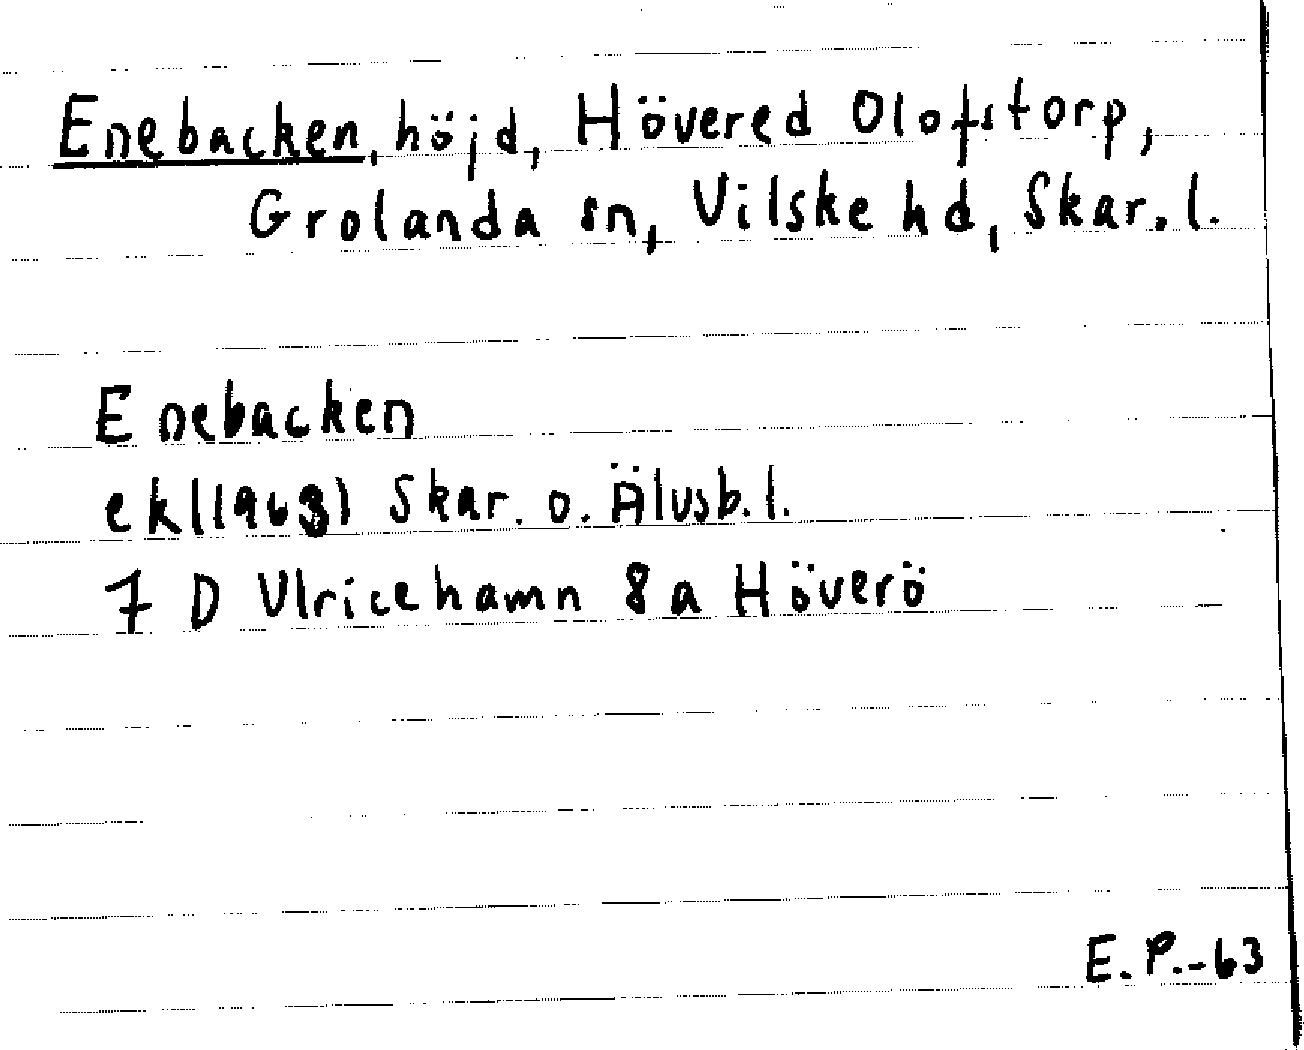 Enebacken, höjd, Hövered Olofstorp,
Grolanda sn, Vilske hd, Skar. l.
Enebacken
ek(1963) Skar. o. Älvsb. l.
7 D Ulricehamn 8 a Höverö
E. P. - 63